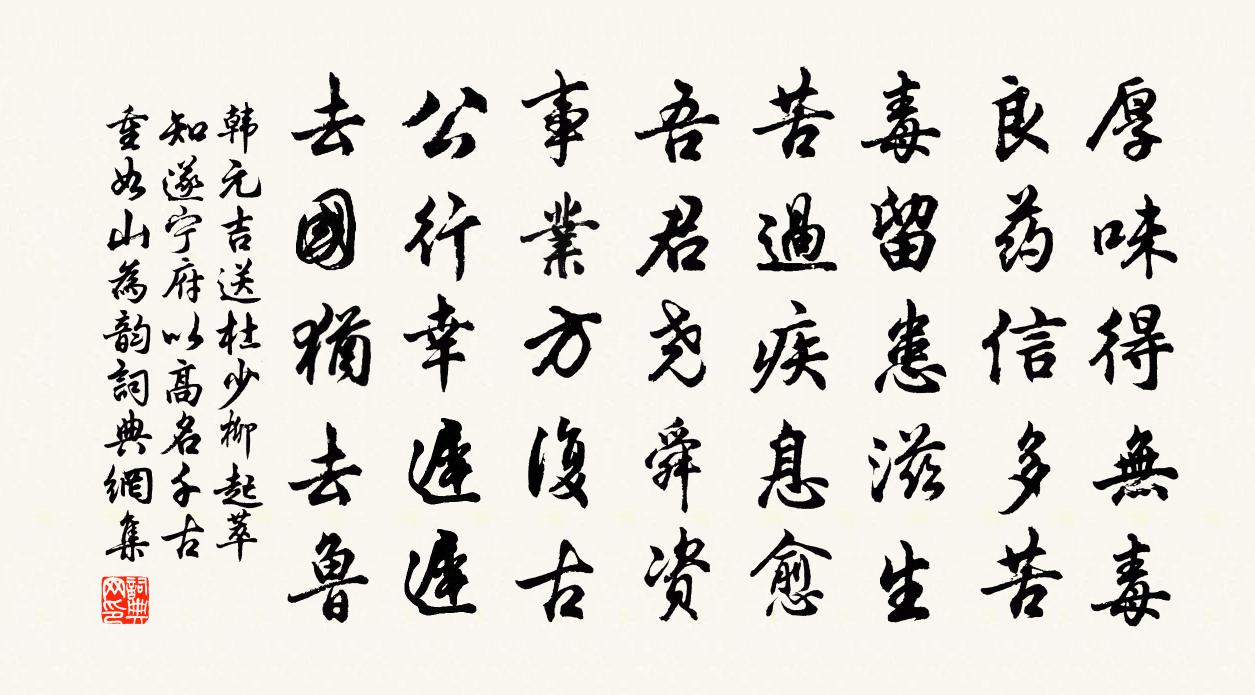 厚味得無毒
良药信多苦
毒留患滋生
苦過疾息愈
吾君尧舜资
事業方復古
公行幸遲遲
去國猶去魯
韩元吉送杜少柳起莘
知遂宁府以高名千古
重如山為韵詞典網集
詞典网印